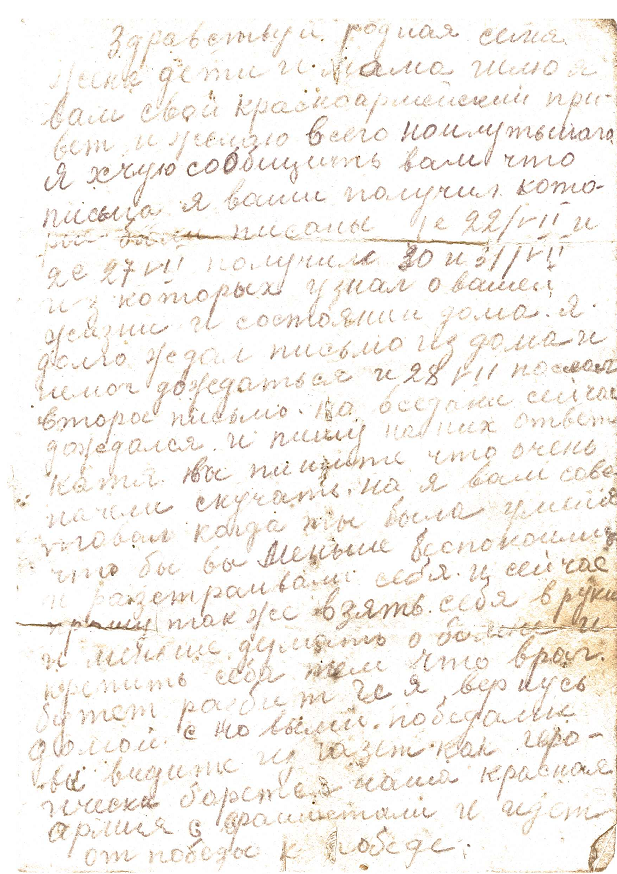 Здравствуй родная семя
жена дети и мама шлю я
вам свой красноармейский при-
вет и желаю всего наилутьшаго
Я хчую сообщить вам что
письма я ваши получил кото-
рые были писаны 1е 22/VII и
2е 27 VII получил 30 и 31/VII
из которых узнал о вашей
жизни и состоянии дома. я
долго ждал письмо из дома и
немог дождаться и 28 VII послал
второе письмо. на сейчас
дождался и пишу на них ответ
катя. вы пишите что очень
начели скучать. на я вам сове-
товал когда ты была у меня
что бы вы меньше беспокоились
и разстраивали себя. и сейчас
прошу так же взять себя в руки
и меньше думать о и
крепить себя тем что враг
будет разбит и я вернусь
домой с новыми победами
вы видите из газет как геро-
ически борется наша красная
армия с фашистами и идет
от победы к победе.